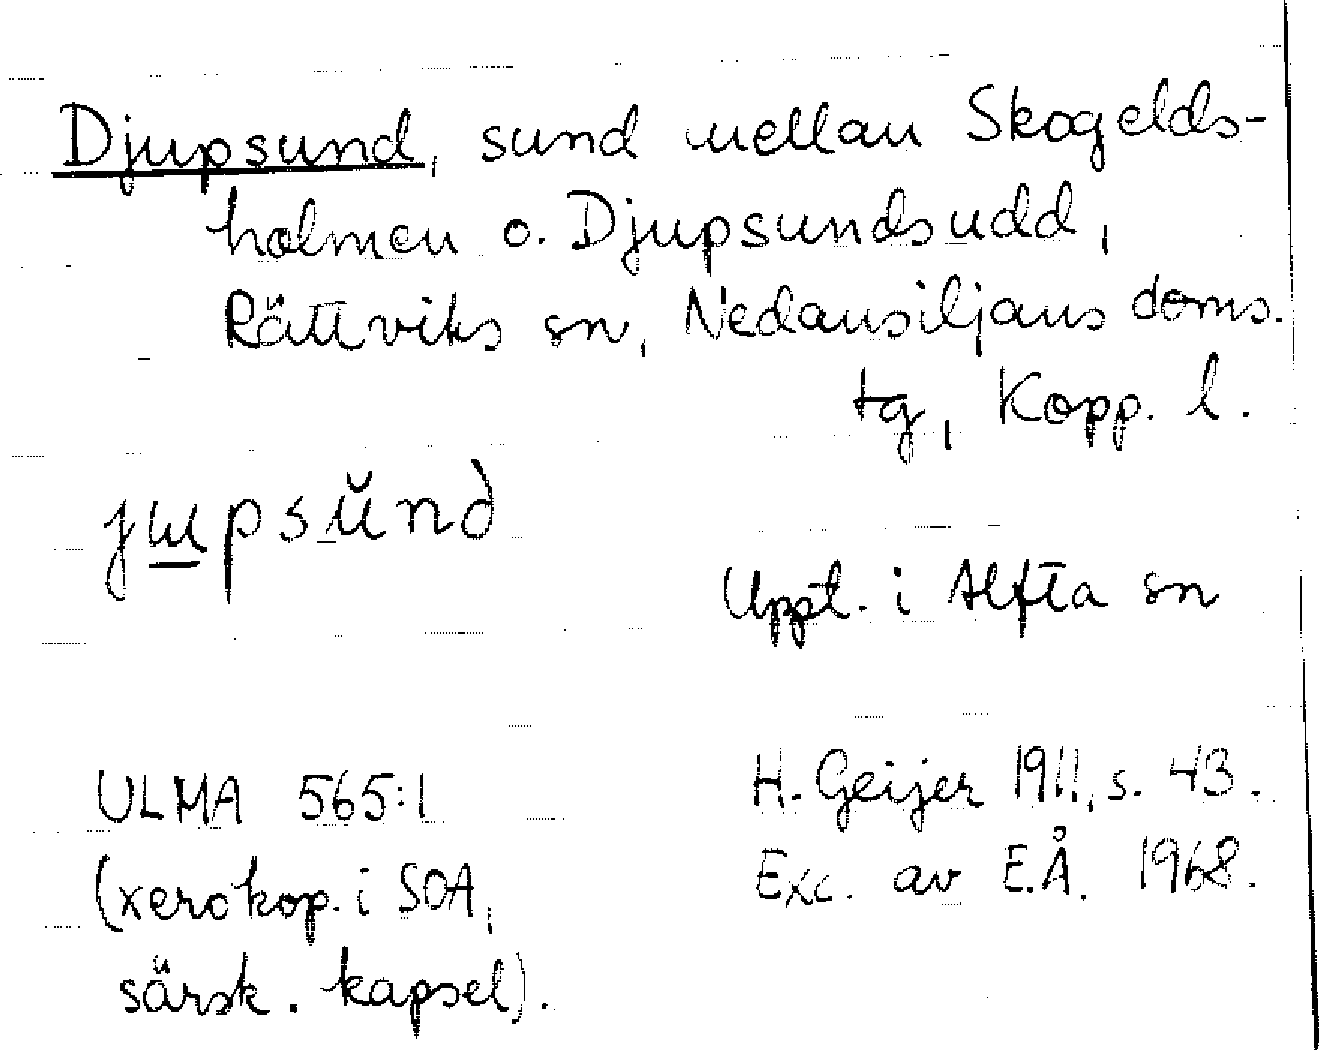 Djupsund, sund mellan Skogelds-
holmen o. Djupsundsudd,
Rättviks sn, Nedansiljans doms.
tg, Kopp. l.
jɯpsŭnd
Uppt. i Alfta sn
ULMA 565:1
(xerokop. i SOA,
särsk. kapsel).
H. Geijer 1911, s. 43.
Exc. av E.Å. 1968.